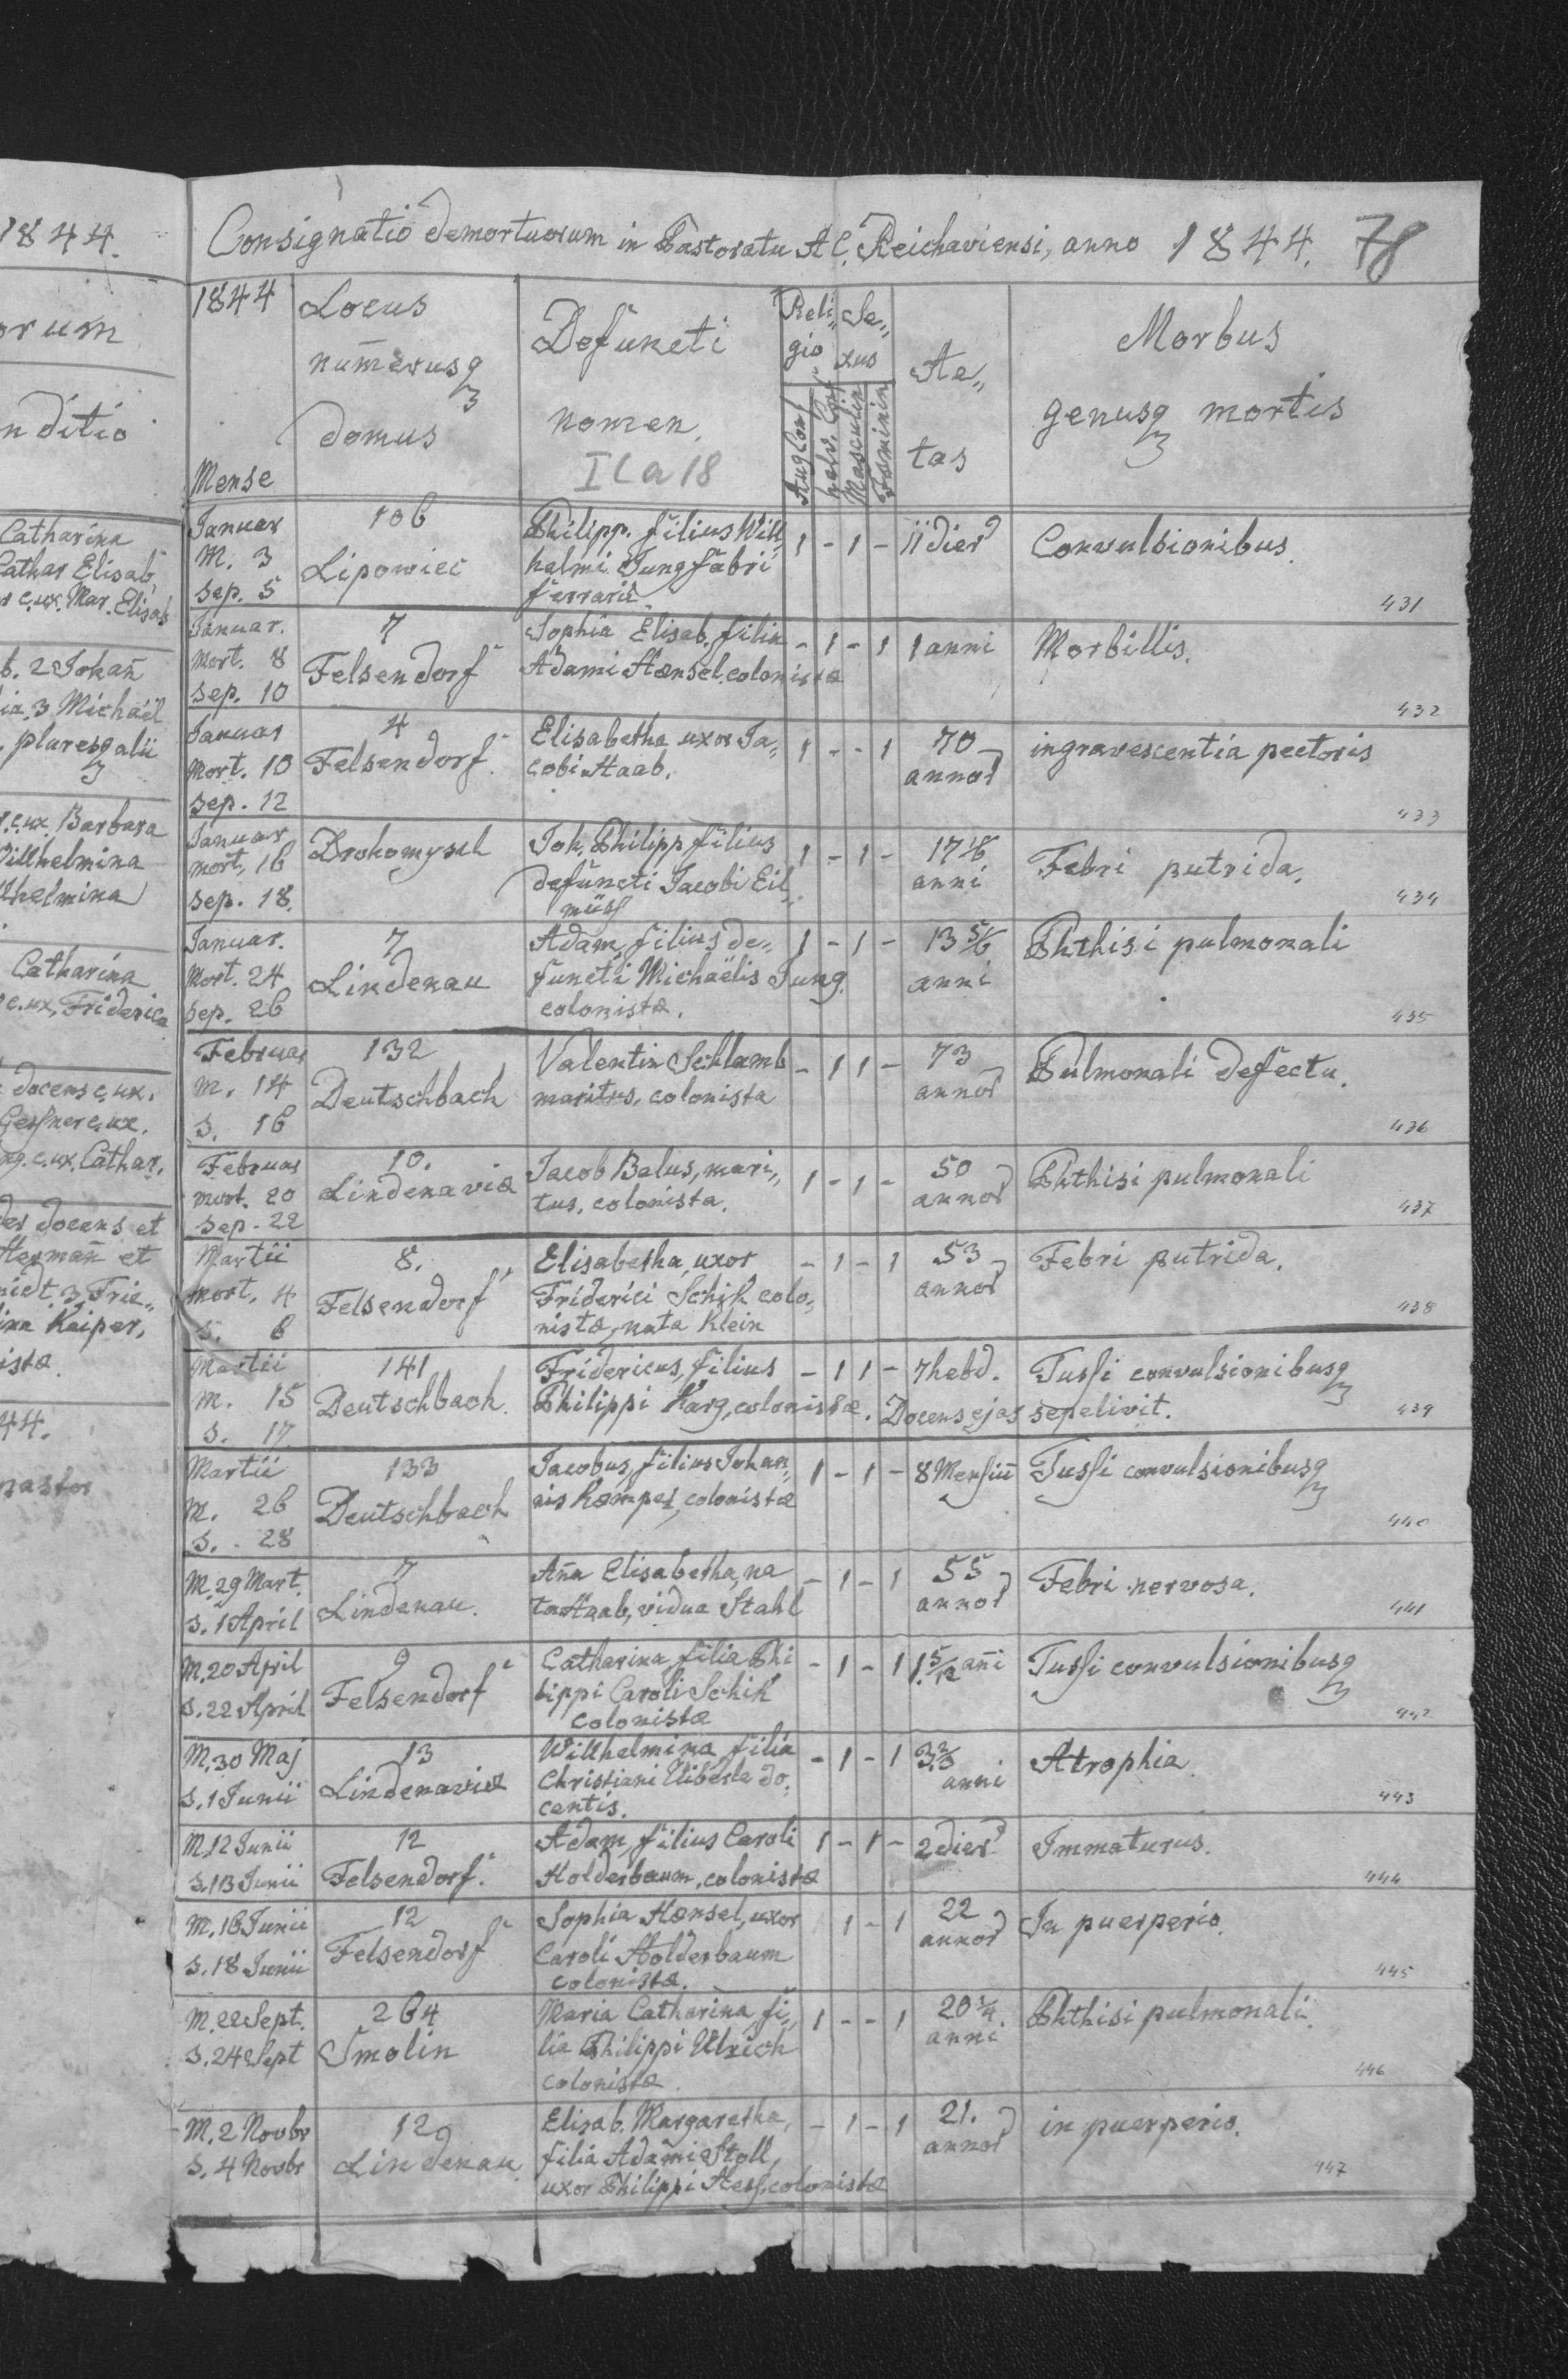 1844.
orum
nditio
Catharina
Cathar Elisab,
r c. ux. Mar. Elisab
b. 2 Johañ
lia, 3 Michaël
. pluresq alii
r. c. ux. Barbara
Villhelmina
lhelmina
Catharina
c. ux, Friderica
docens c. ux.
Gessner c. ux.
ag. c. ux. Cathar.
des docens et
Hermañ et
miedt, 3, Frie„
ina Kaiper,
istæ
44.
pastor
Consignatio demortuorum in Pastoratu A C. Reichaviensi, anno 1844. 78
1844
Mense
Locus
numerusq
domus
Defuncti
nomen.
I C a 18
Reli„
gio
Se„
xus
Aug Conf
helv. Conf
Masculin
Feminin
Ae„
tas
Morbus
genusq mortis
Januar
M. 3
sep. 5
106
Lipowiec
Philipp. filius Will„
helmi Jung fabri
ferrarii
1 - 1 -
11 dier
Convulsionibus.
431
Januar.
Mort. 8
sep. 10
7
Felsendorf
Sophia Elisab. filia
Adami Hænsel, colonistæ
- 1 - 1
1 anni
Morbillis.
432
Januar
Mort. 10
sep. 12
4
Felsendorf
Elisabetha uxor Ja„
cobi Haab.
1 - - 1
70
annor
ingravescentia pectoris
433
Januar
mort. 16
sep. 18.
Drohomysl
Joh. Philipp filius
defuncti Jacobi Eil„
müss
1 - 1 -
17 1/6
anni
Febri putrida.
434
Januar.
Mort. 24
sep. 26
7
Lindenau
Adam, filius de„
functi Michaëlis Jung.
colonistæ.
1 - 1 -
13 5/6
anni
Phthisi pulmonali
435
Februar
M. 14
S. 16
132
Deutschbach
Valentin Schlamb
maritus, colonista
- 1 1 -
73
annor
Pulmonali defectu.
436
Februar
mort. 20
sep. 22
10.
Lindenaviæ
Jacob Balus, mari„
tus, colonista.
1 - 1 -
50
annor
Phthisi pulmonali
437
Martii
mort. 4
S. 6
8.
Felsendorf
Elisabetha, uxor
Friderici Schik colo„
nistæ, nata Klein
- 1 - 1
53
annor
Febri putrida.
438
Martii
M. 15
S. 17
141
Deutschbach.
Fridericus, filius
Philippi Karg, colonistæ. Docens ejas sepelivit.
- 1 1 -
7 hebd.
Tussi convulsionibusq
439
Martii
M. 26
S. 28
133
Deutschbach
Jacobus, filius Johan„
nis Kæmpes, colonistæ
1 - 1 -
8 Mensiū
Tussi convulsionibusq
440
M. 29 Mart.
S. 1 April
7
Lindenau.
Aña Elisabetha, na
ta Haab, vidua Stahl
- 1 - 1
55
annor
Febri nervosa.
441
M. 20 April
S. 22 April
9
Felsendorf
Catharina, filia Phi
lippi Caroli Schik
colonistæ
- 1 - 1
1 5/12 añi
Tussi convulsionibusq
442
M. 30 Maj
S. 1 Junii
13
Lindenaviæ
Willhelmina filia
Christiani Uiberle do„
centis.
- 1 - 1
3 2/3
anni
Atrophia
443
M. 12 Junii
S. 13 Junii
12
Felsendorf.
Adam, filius Caroli
Holderbaum, colonistæ
1 - 1 -
2 dier
Immaturus.
444
M. 16 Junii
S. 18 Junii
12
Felsendorf
Sophia Hænsel, uxor
Caroli Holderbaum
colonistæ.
1 - 1
22
annor
In puerperio.
445
M. 22 Sept.
S. 24 Sept
264
Smolin
Maria Catharina, fi„
lia Philippi Ulrich
colonistæ
1 - - 1
20 1/4
anni
Phthisi pulmonali.
446
M. 2 Novbr
S. 4 Novbr
12
Lindenau.
Elisab. Margaretha,
filia Adami Stoll,
uxor Philippi Hess, colonistæ
- 1 - 1
21.
annor
in puerperio.
447